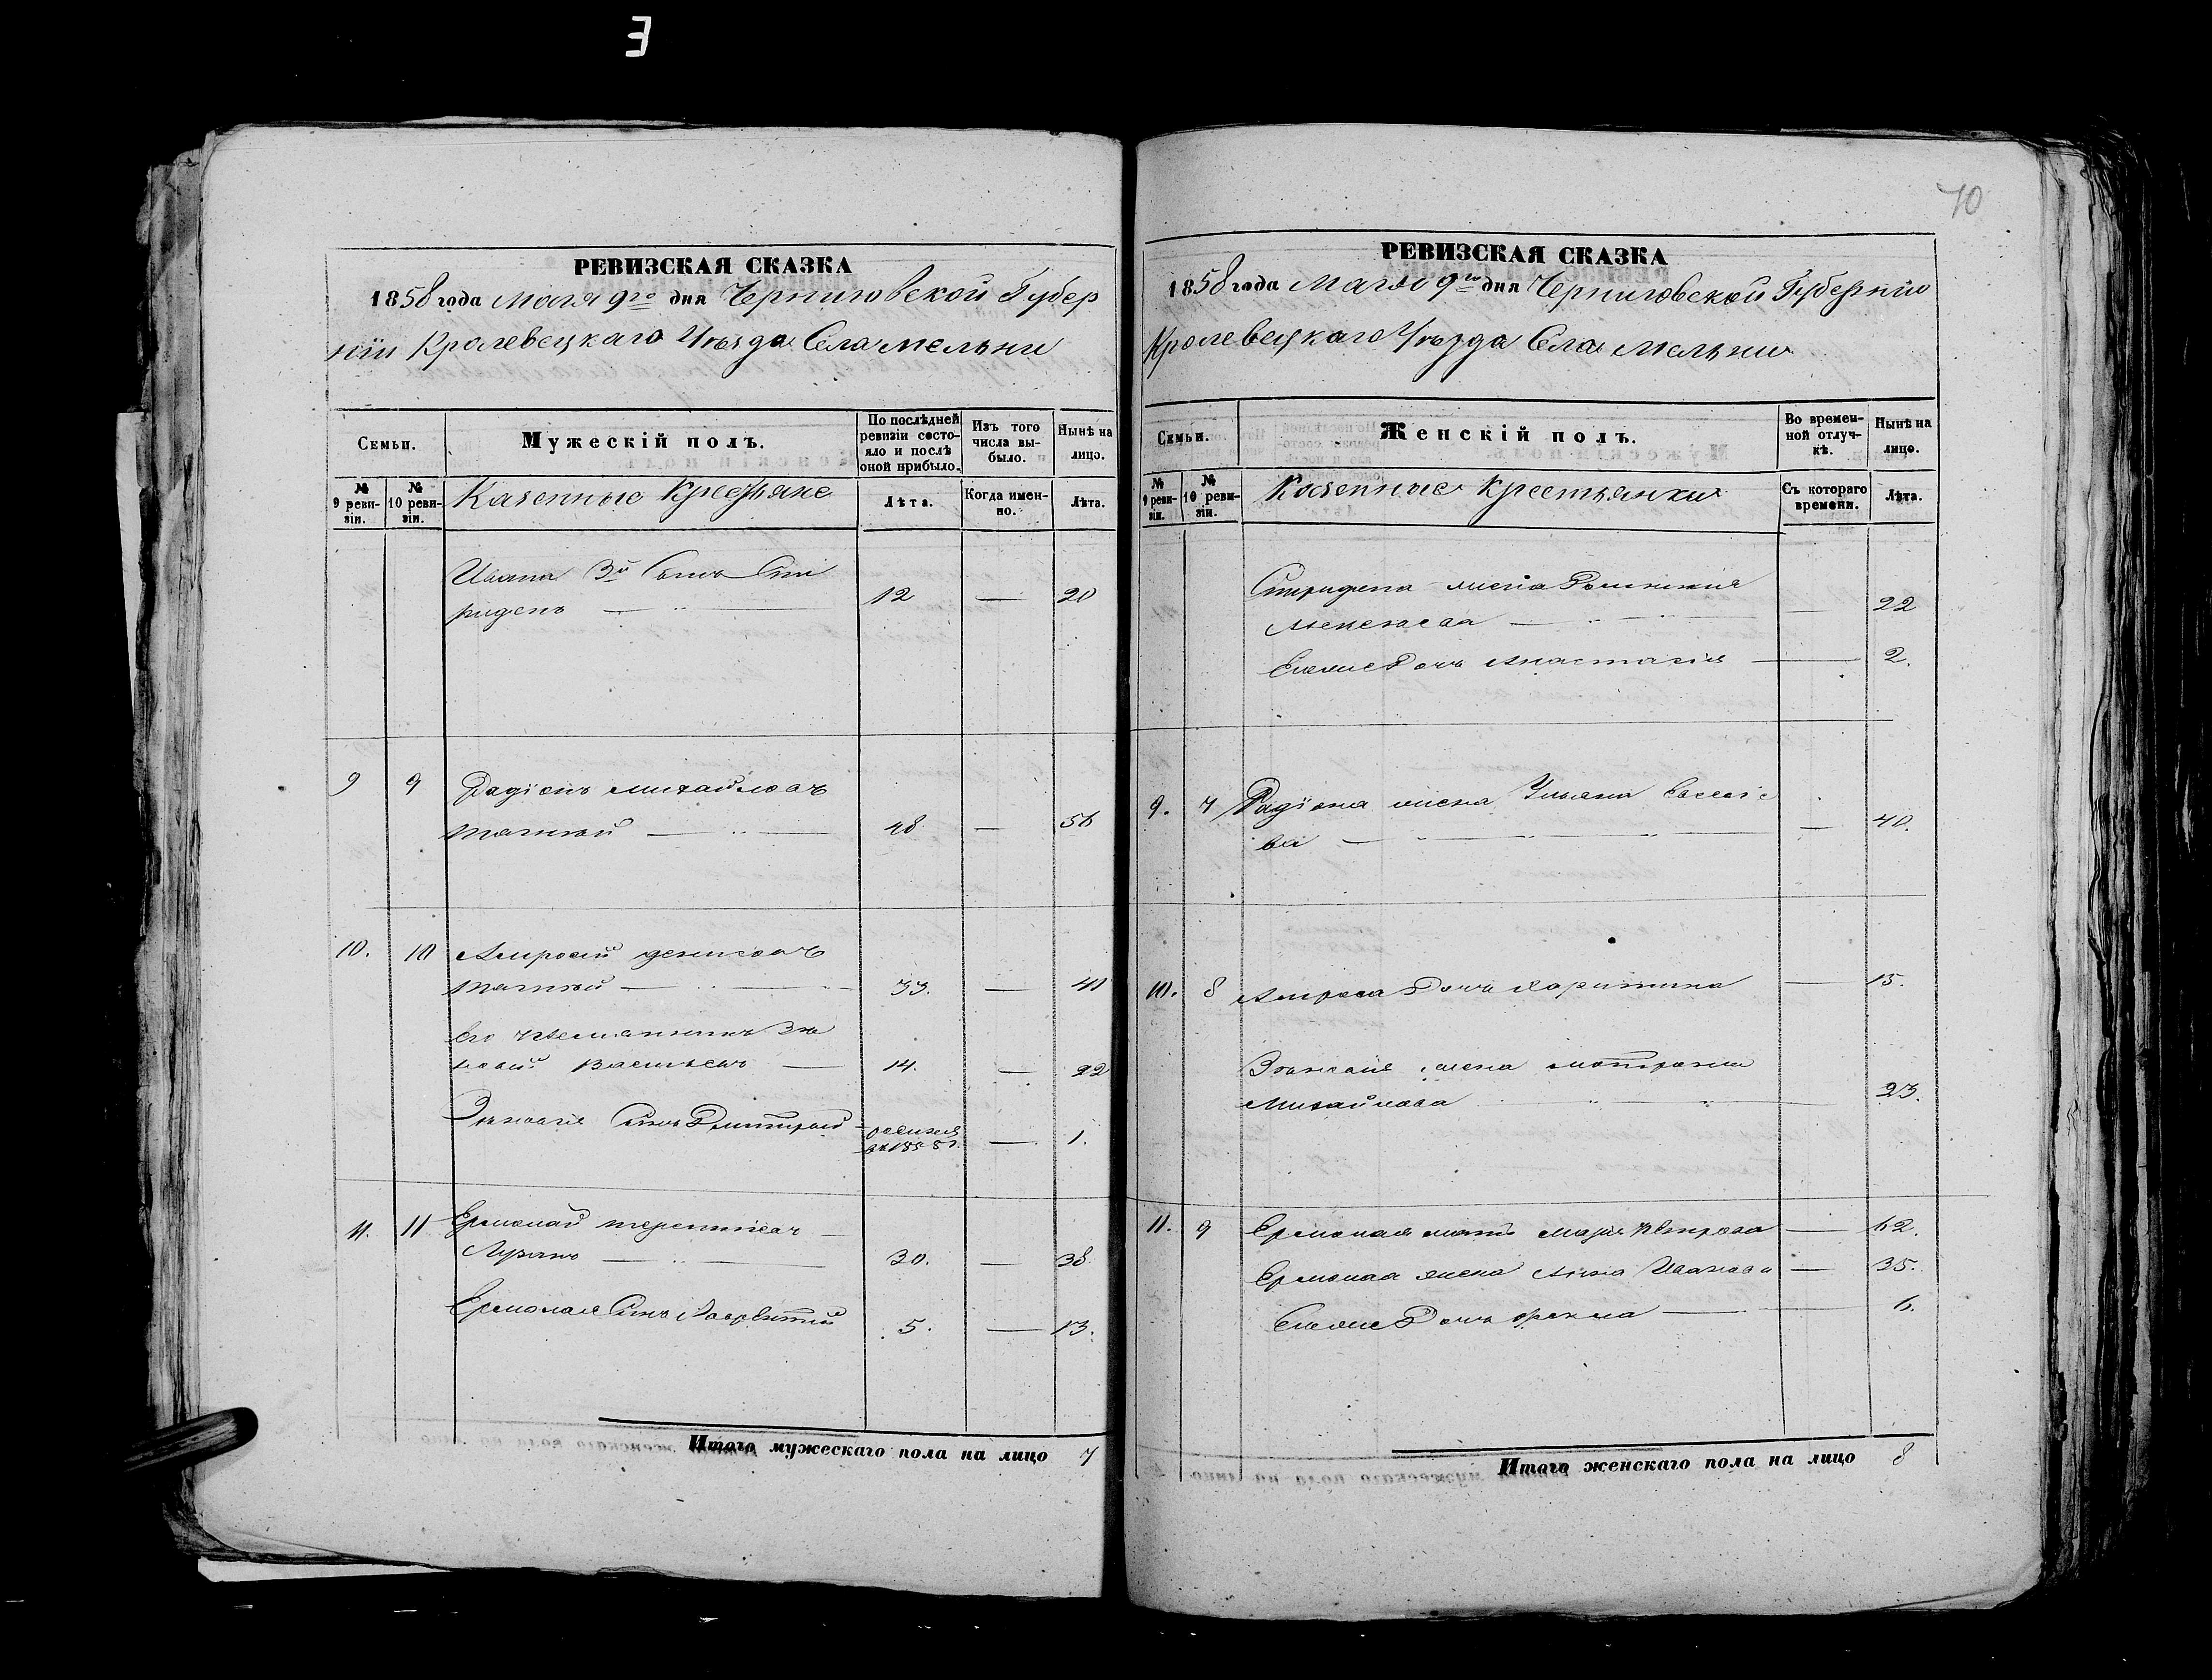 E
70
РЕВИЗСКАЯ СКАЗКА
1858 года Мая 9го дня Черниговской Губер
ніи Кролевецкаго Уезда Села мельни
Семьи.
Мужескій полъ.
По послѣдней ревизіи состояло и послѣ оной прибыло.
Изъ того числа выбыло.
Нынѣ на лицо.
№ 9 ревизіи.
№ 10 ревизіи.
Казенные Крестьяне
Лѣта.
Когда именно.
Лѣта.
Ивана 3й Сынъ Спи
ридонъ — 12 — 20
9 9 Радіонъ Михайловъ
48 —
10. 10 Амросій денисовъ
33. —
Его племянникъ Зи
новій Васильевъ — 14. — 22
Зиновія Сынъ Дмитрій — 1.
11. 11 Ермолай терентіевъ —
30. — 38
Ермолая Сынъ Лаврентій 5. — 13.
Итого мужескаго пола на лицо 7
РЕВИЗСКАЯ СКАЗКА
1858 года Мая 9го дня Черниговской Губерніи
Кролевецкаго Уѣзда Села Мельни
Семьи.
Женскій полъ.
Во временной отлучкѣ.
Нынѣ на лицо.
№ 9 ревизіи.
№ 10 ревизіи.
Казенные Крестьянки
Съ котораго времени.
Лѣта.
Спиридона жена
— 22
Дочь Анастасія — 2.
9. 7 Радіона жена Ульяна Евсеіе
ва — 40.
10. 8 Амроса Дочь Харитина — 15.
Зиновія жена мотрона
Михайлова 23.
11. 9 Ермолая мать Марія Петрова — 62.
Ермолая жена Анна Иванова — 35.
Дочь Фекла — 6.
Итого женскаго пола на лицо 8